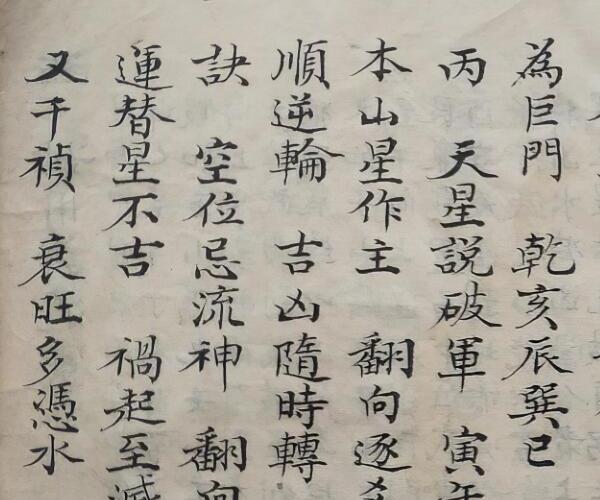 為巨門 乾亥辰巽巳
丙 天星說破軍 寅
本山星作主 翻向逐
順逆輪 吉凶隨時轉
訣 空位忌流神 翻向
運替星不吉 禍起至滅
又千禎 衰旺多憑水